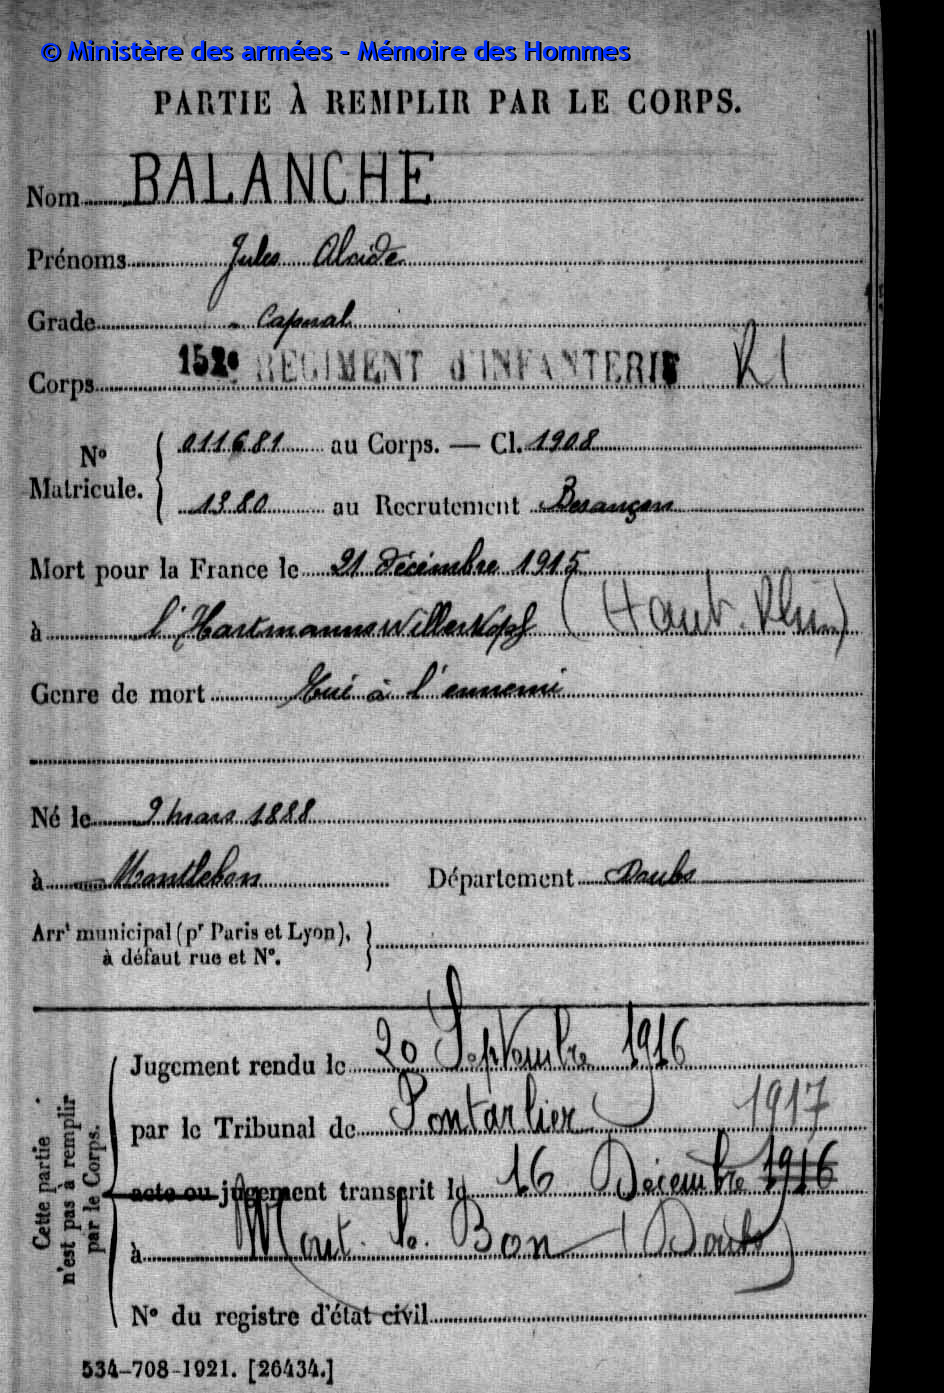 © Ministère des armées - Mémoire des Hommes
PARTIE À REMPLIR PAR LE CORPS.
Nom BALANCHE
Prénoms Jules Alcide
Grade Caporal
Corps 152e RÉGIMENT d'INFANTERIE R1
No Matricule. 011681 au Corps. — Cl. 1908
1380 au Recrutement Besançon
Mort pour la France le 21 décembre 1915
à l'Hartmannswillerkopf (Haut-Rhin)
Genre de mort Tué à l'ennemi
Né le 9 mars 1888
à Montlebon Département Doubs
Arrt municipal (pr Paris et Lyon),
à défaut rue et No.
Cette partie n'est pas à remplir par le Corps.
Jugement rendu le 20 Septembre 1916
par le Tribunal de Pontarlier 1917
acte ou jugement transcrit le 16 Décembre 1916
à Mont-le-Bon (Doubs)
No du registre d'état civil
534-708-1921. [26434.]